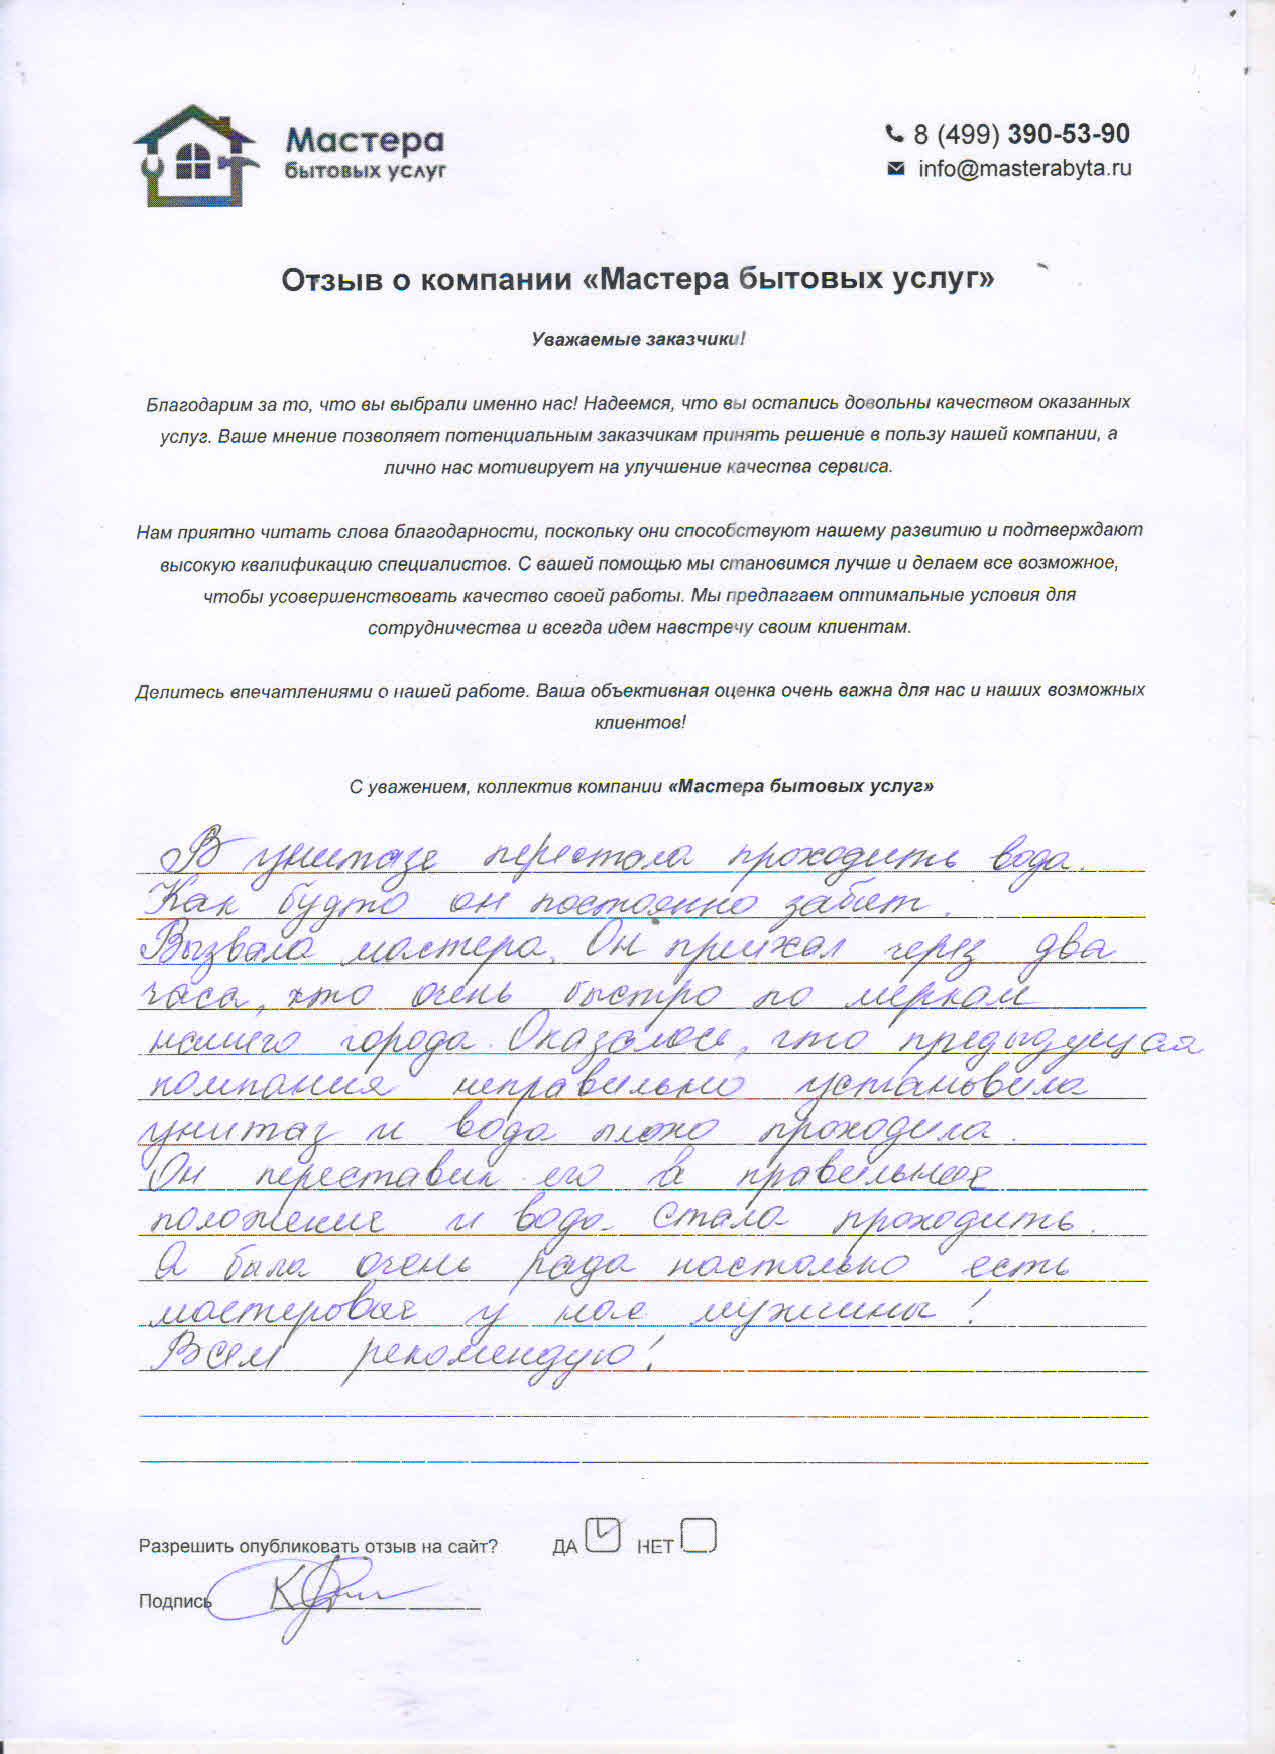 Мастера
бытовых услуг
8 (499) 390-53-90
info@masterabyta.ru
Отзыв о компании «Мастера бытовых услуг»
Уважаемые заказчики!
Благодарим за то, что вы выбрали именно нас! Надеемся, что вы остались довольны качеством оказанных
услуг. Ваше мнение позволяет потенциальным заказчикам принять решение в пользу нашей компании, а
лично нас мотивирует на улучшение качества сервиса.
Нам приятно читать слова благодарности, поскольку они способствуют нашему развитию и подтверждают
высокую квалификацию специалистов. С вашей помощью мы становимся лучше и делаем все возможное,
чтобы усовершенствовать качество своей работы. Мы предлагаем оптимальные условия для
сотрудничества и всегда идем навстречу своим клиентам.
Делитесь впечатлениями о нашей работе. Ваша объективная оценка очень важна для нас и наших возможных
клиентов!
С уважением, коллектив компании «Мастера бытовых услуг»
В унитазе перестала проходить вода.
Как будто он постоянно забит.
Вызвала мастера. Он приехал через два
часа, что очень быстро по меркам
нашего города. Оказалось, что предыдущая
компания неправильно установила
унитаз и вода плохо проходила.
Он переставил его в правильное
положение и вода стала проходить.
Я была очень рада настолько есть
мастеровые у нас мужчины!
Всем рекомендую!
Разрешить опубликовать отзыв на сайт? ДА НЕТ
Подпись